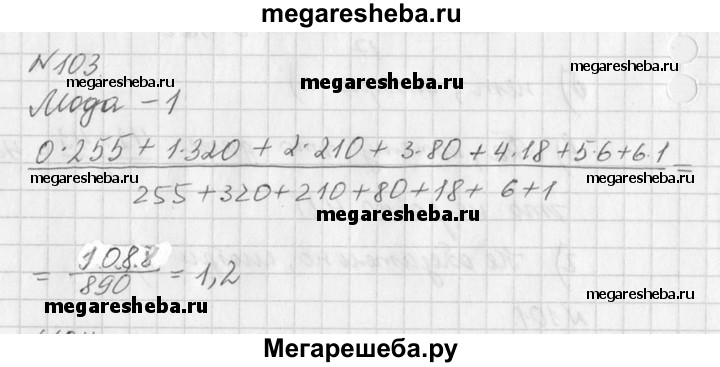 megaresheba.ru
№103
megaresheba.ru megaresheba.ru megaresheba.ru
Мода - 1
0·255 + 1·320 + 2·210 + 3·80 + 4·18 + 5·6 + 6·1 =
megaresheba.ru megaresheba.ru
255 + 320 + 210 + 80 + 18 + 6 + 1
megaresheba.ru
= 1088 / 890 = 1,2
megaresheba.ru megaresheba.ru
Мегарешеба.ру